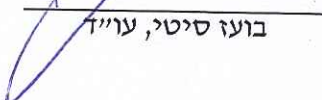 בועז סיטי, עו"ד